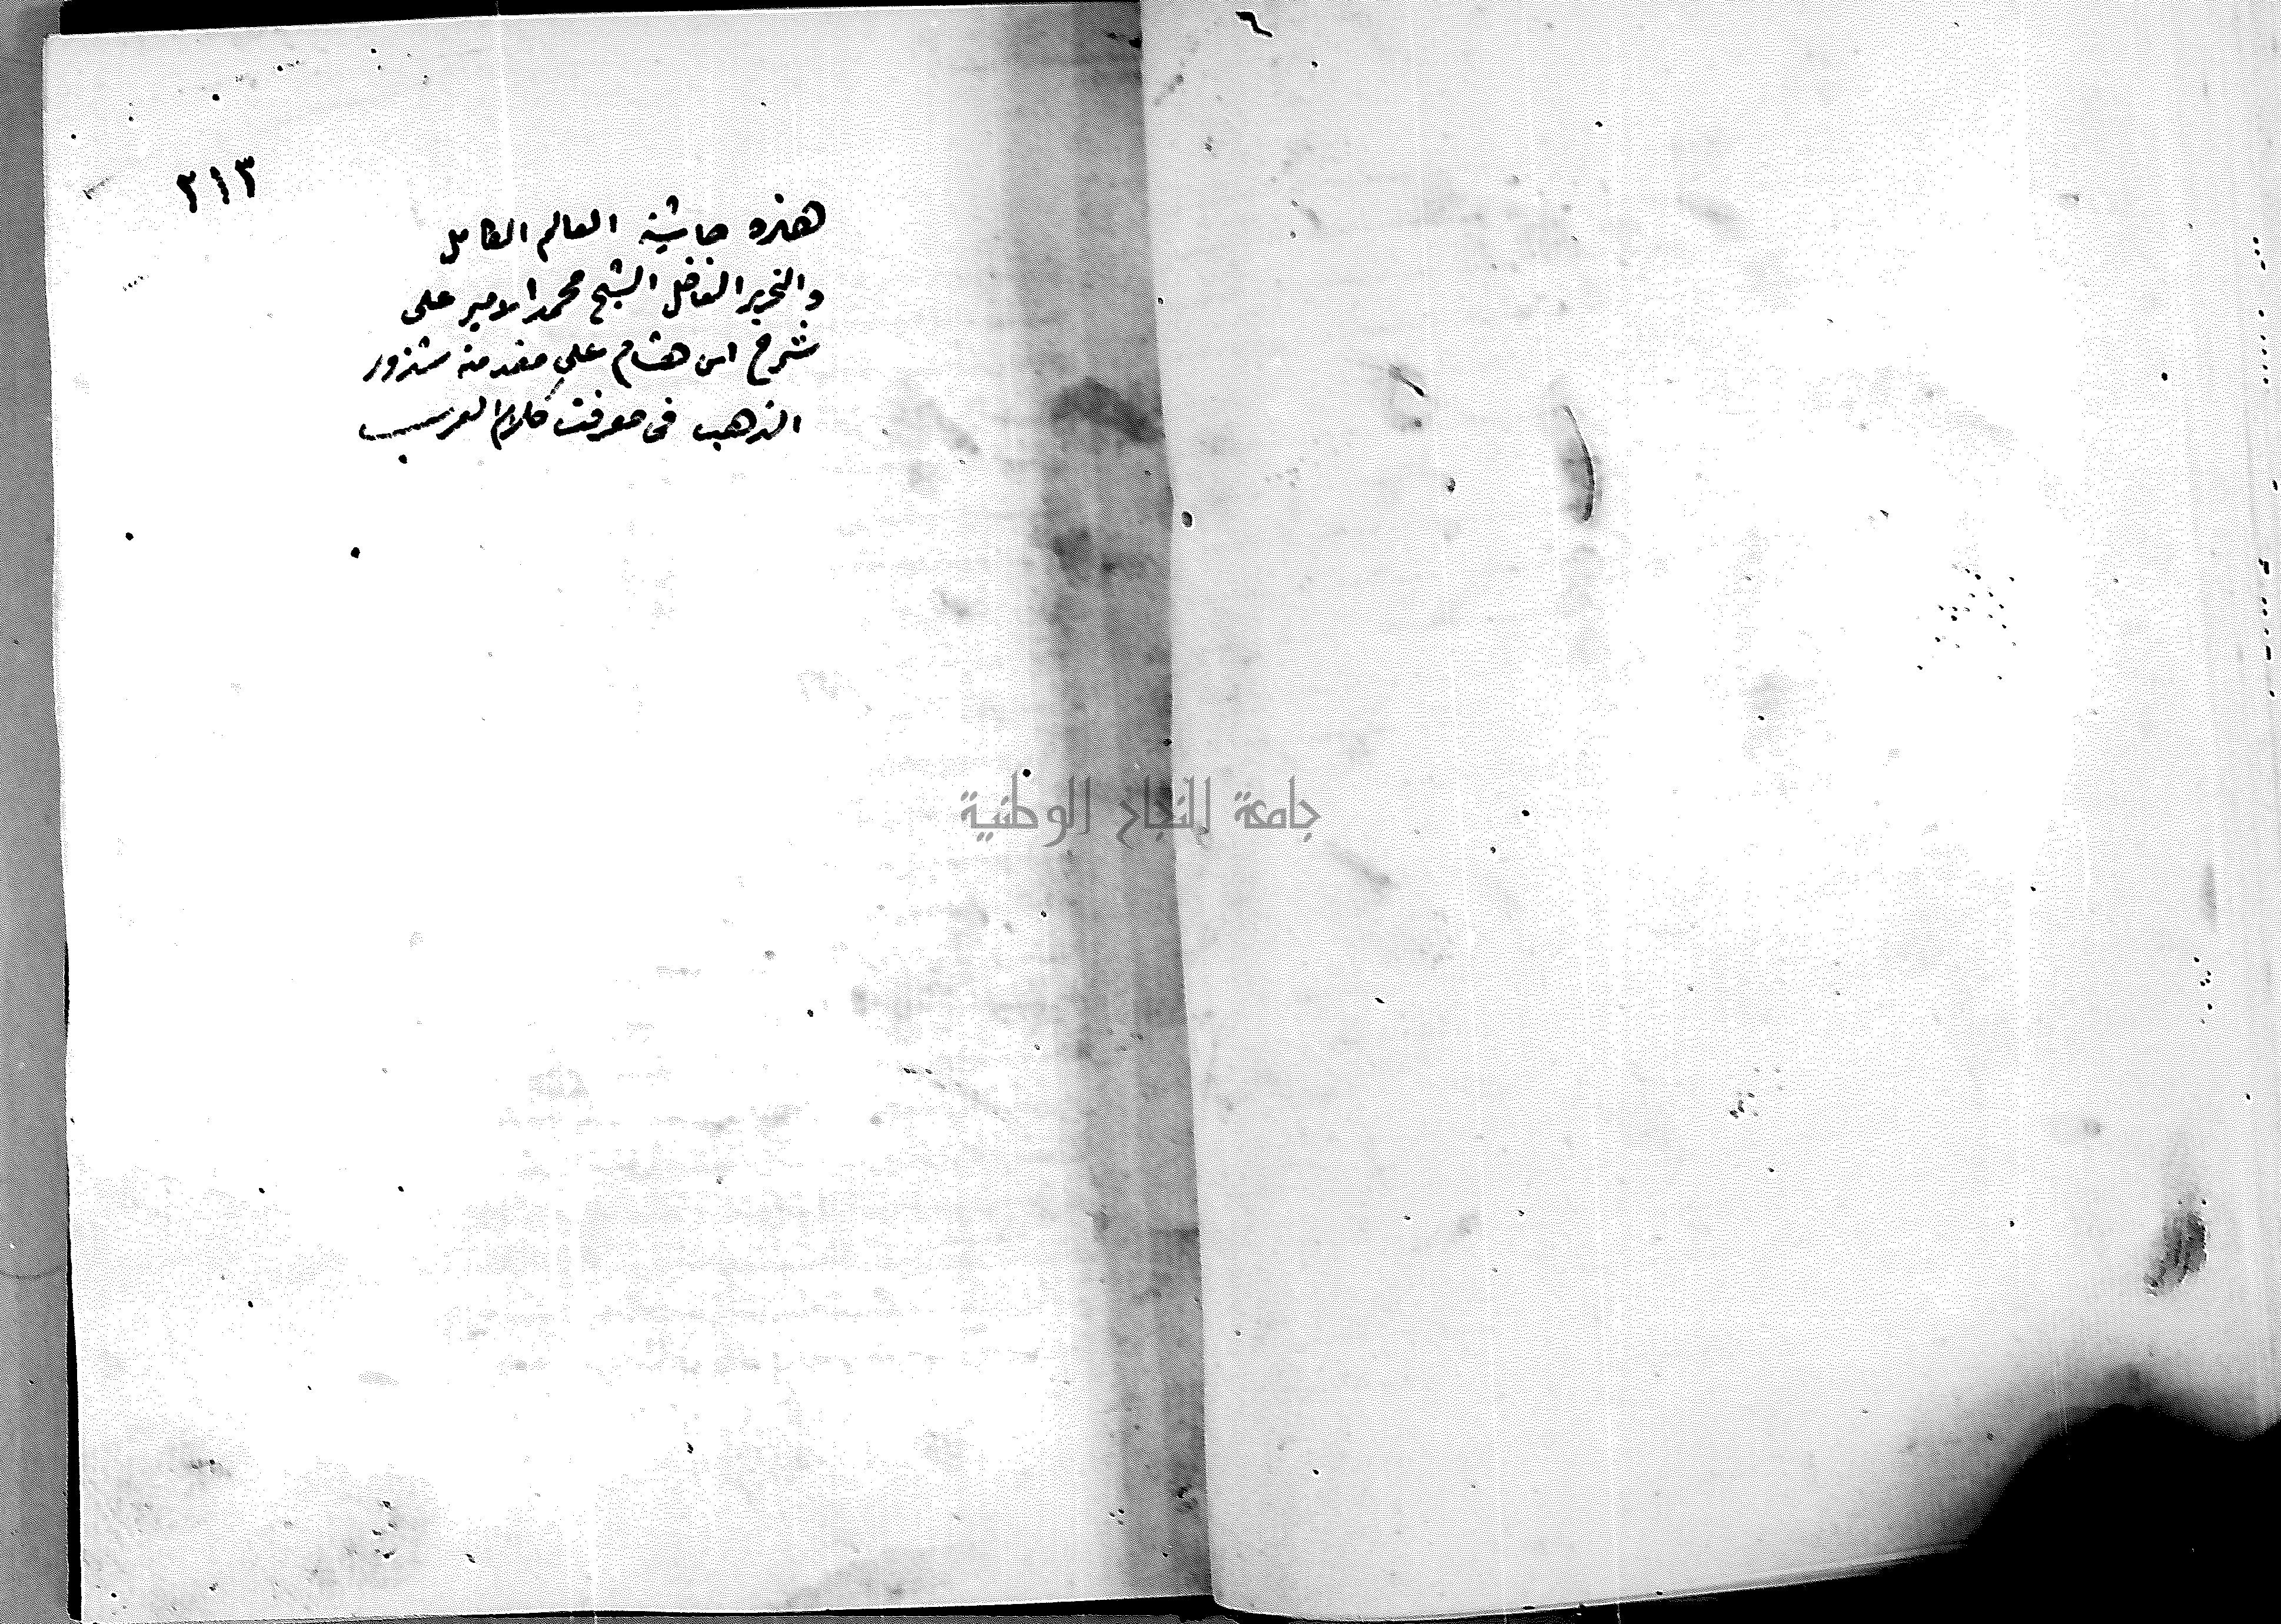 ٢١٣
هذه حاشية العالم الكامل
والنحرير الفاضل الشيخ محمد الامير على
شرح ابن هشام على مقدمته شذور
الذهب في معرفت كلام العرب
جامعة النجاح الوطنية